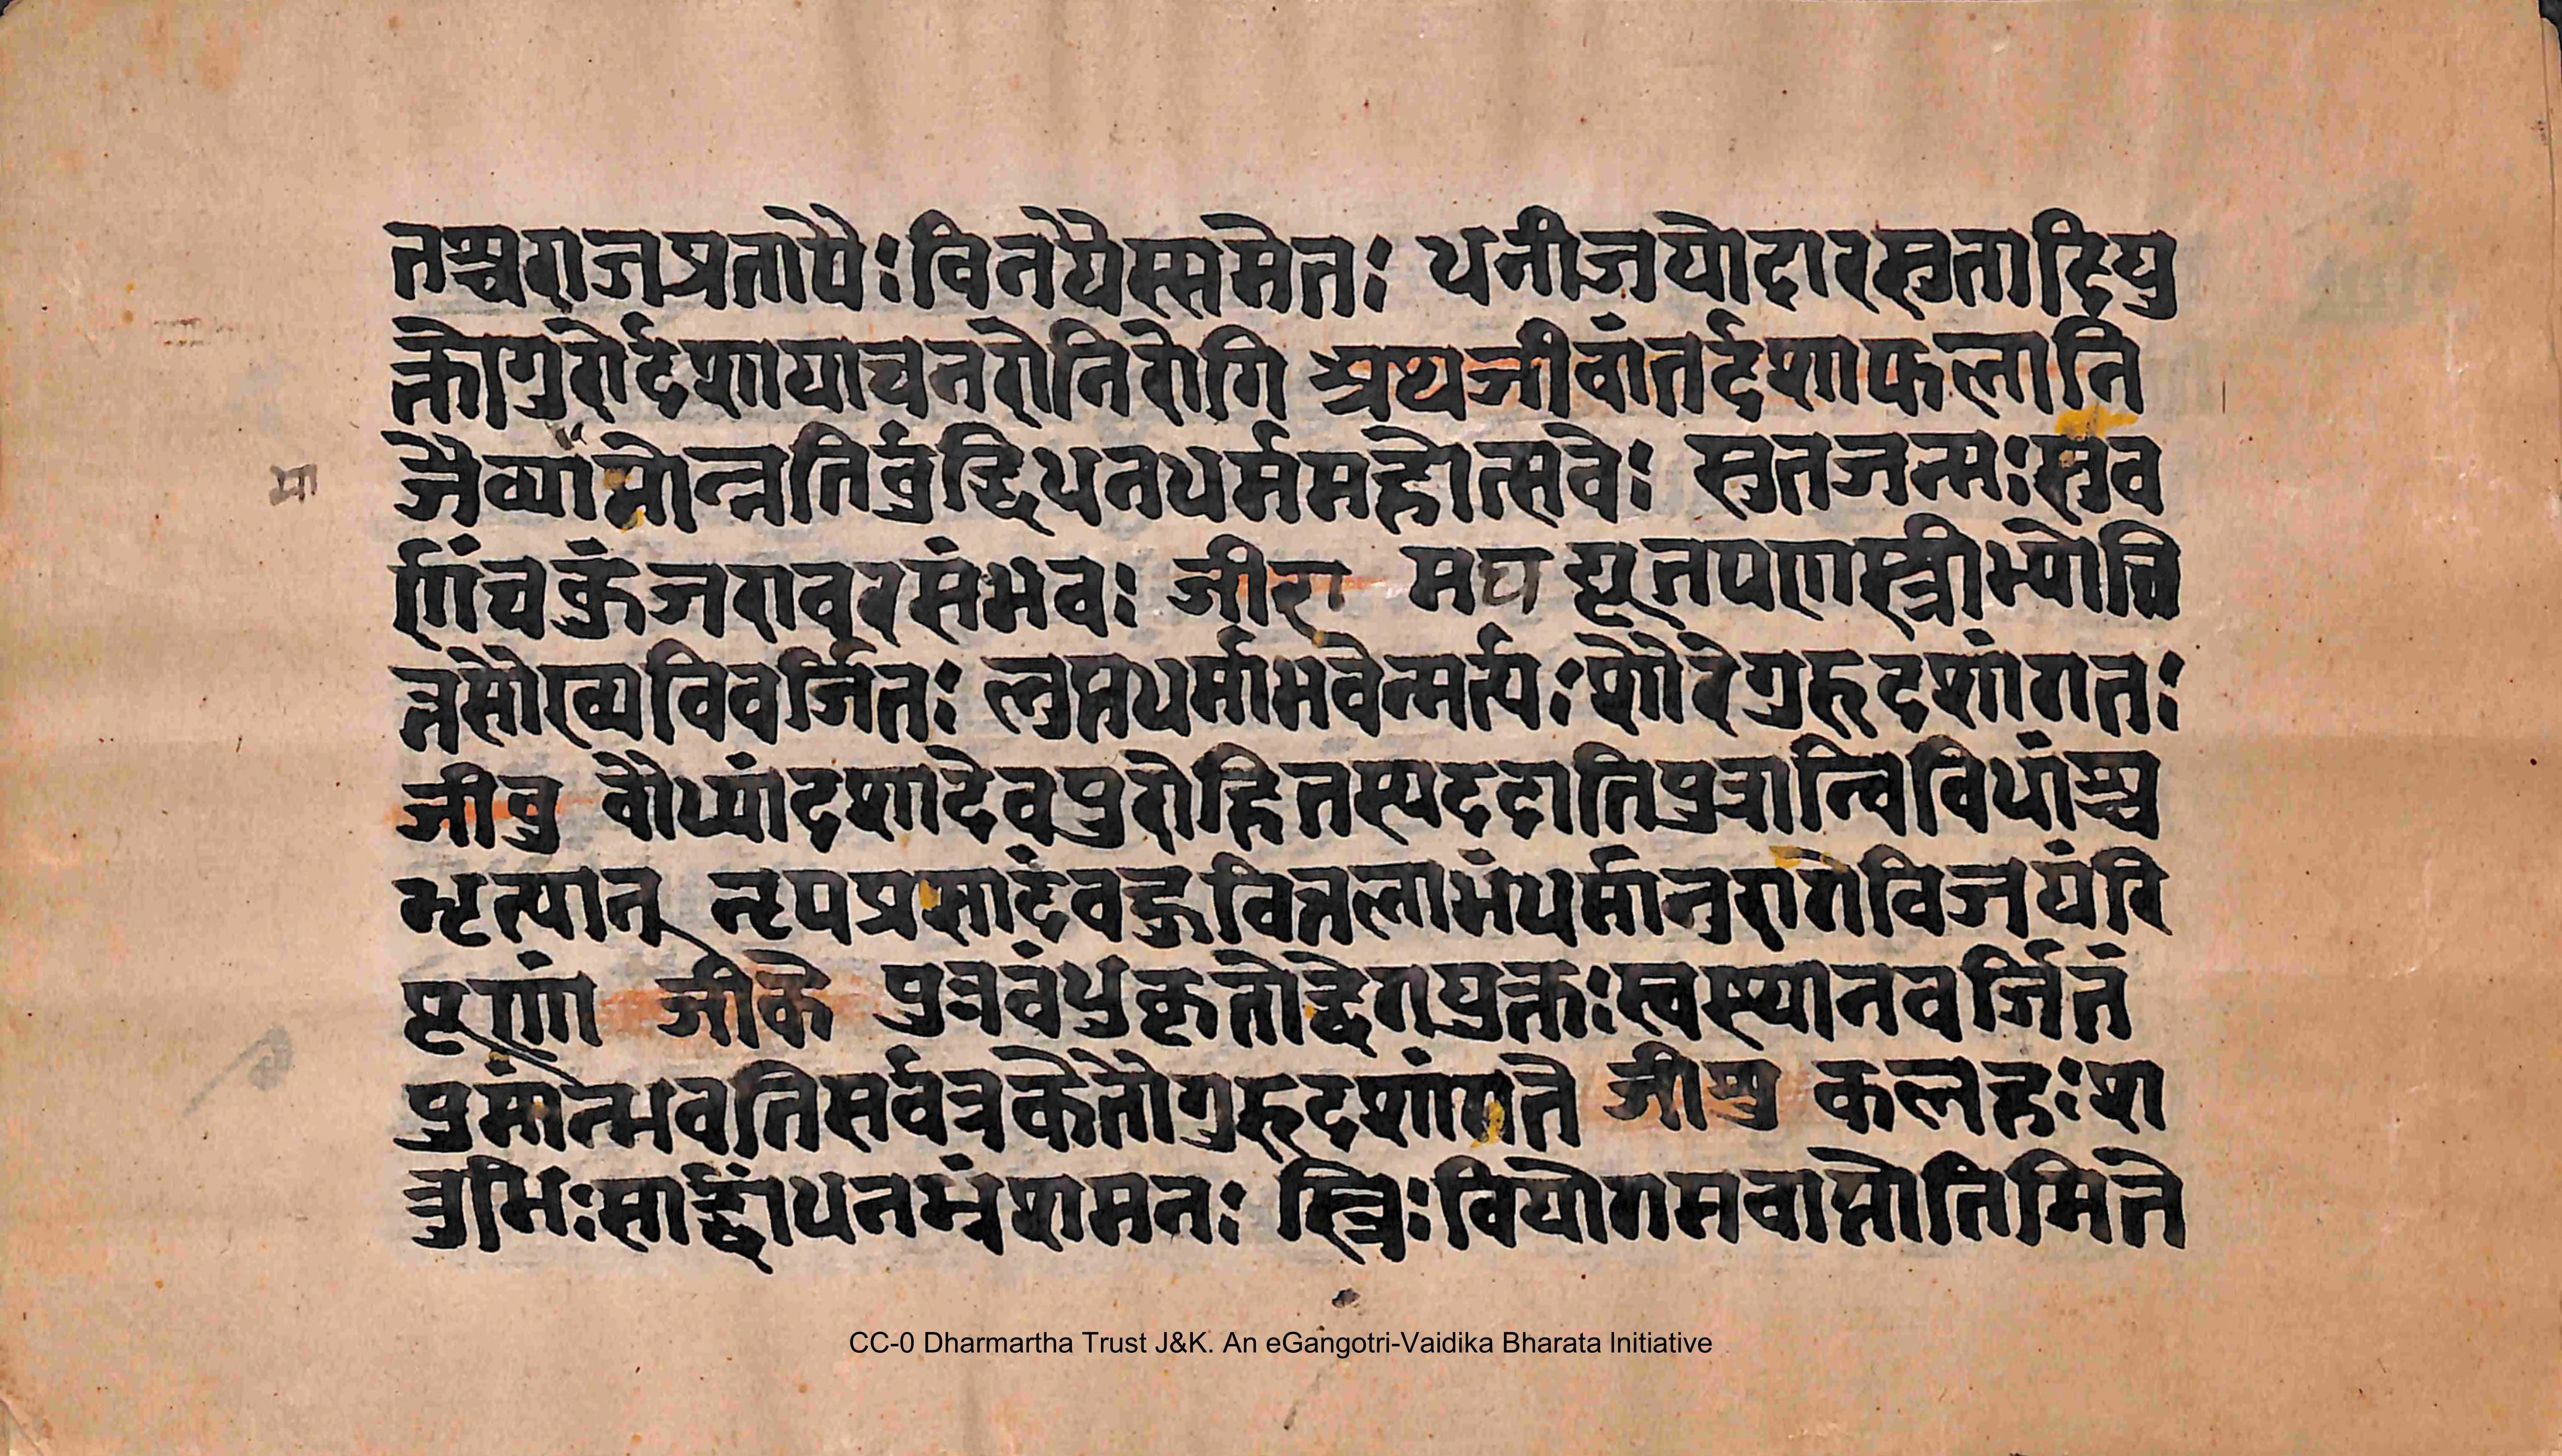 तश्चराजप्रतापैः विनयैस्समेतः धनीजयोदारसुतादियु
क्तोगुरोर्दशायाचनरोनिरोगि अथजीवांतर्दशाफलानि
जैव्यांप्नोन्नतिर्वुद्धिधनधर्ममहोत्सवेः सुतजन्मःसुव
र्णिंचकुंजरावरसंभवः जीरा मद्य द्यूतपणस्त्रीभ्योवि
त्तसौख्यविवर्जितः लुप्तधर्माभवेन्मर्त्यःशौरेगुरुदशांगतः
जीवु वौध्यांदशादेवपुरोहितस्यददातिपुत्रान्विविधांश्च
भृत्यान् नृपप्रसादंवहुवित्तलाभंधर्मानुरागेविजयंरि
पूणां जीके पुत्रवंधुकृतोद्वेगयुक्तःस्वस्थानवर्जितं
पुमांन्भवतिसर्वत्रकेतौगुरुदशांगते जीशु कलहःश
त्रुभिःसार्द्धांधनभ्रंशमनः स्त्रिःवियोगमवाप्नोतिमिते
मा
CC-0 Dharmartha Trust J&K. An eGangotri-Vaidika Bharata Initiative